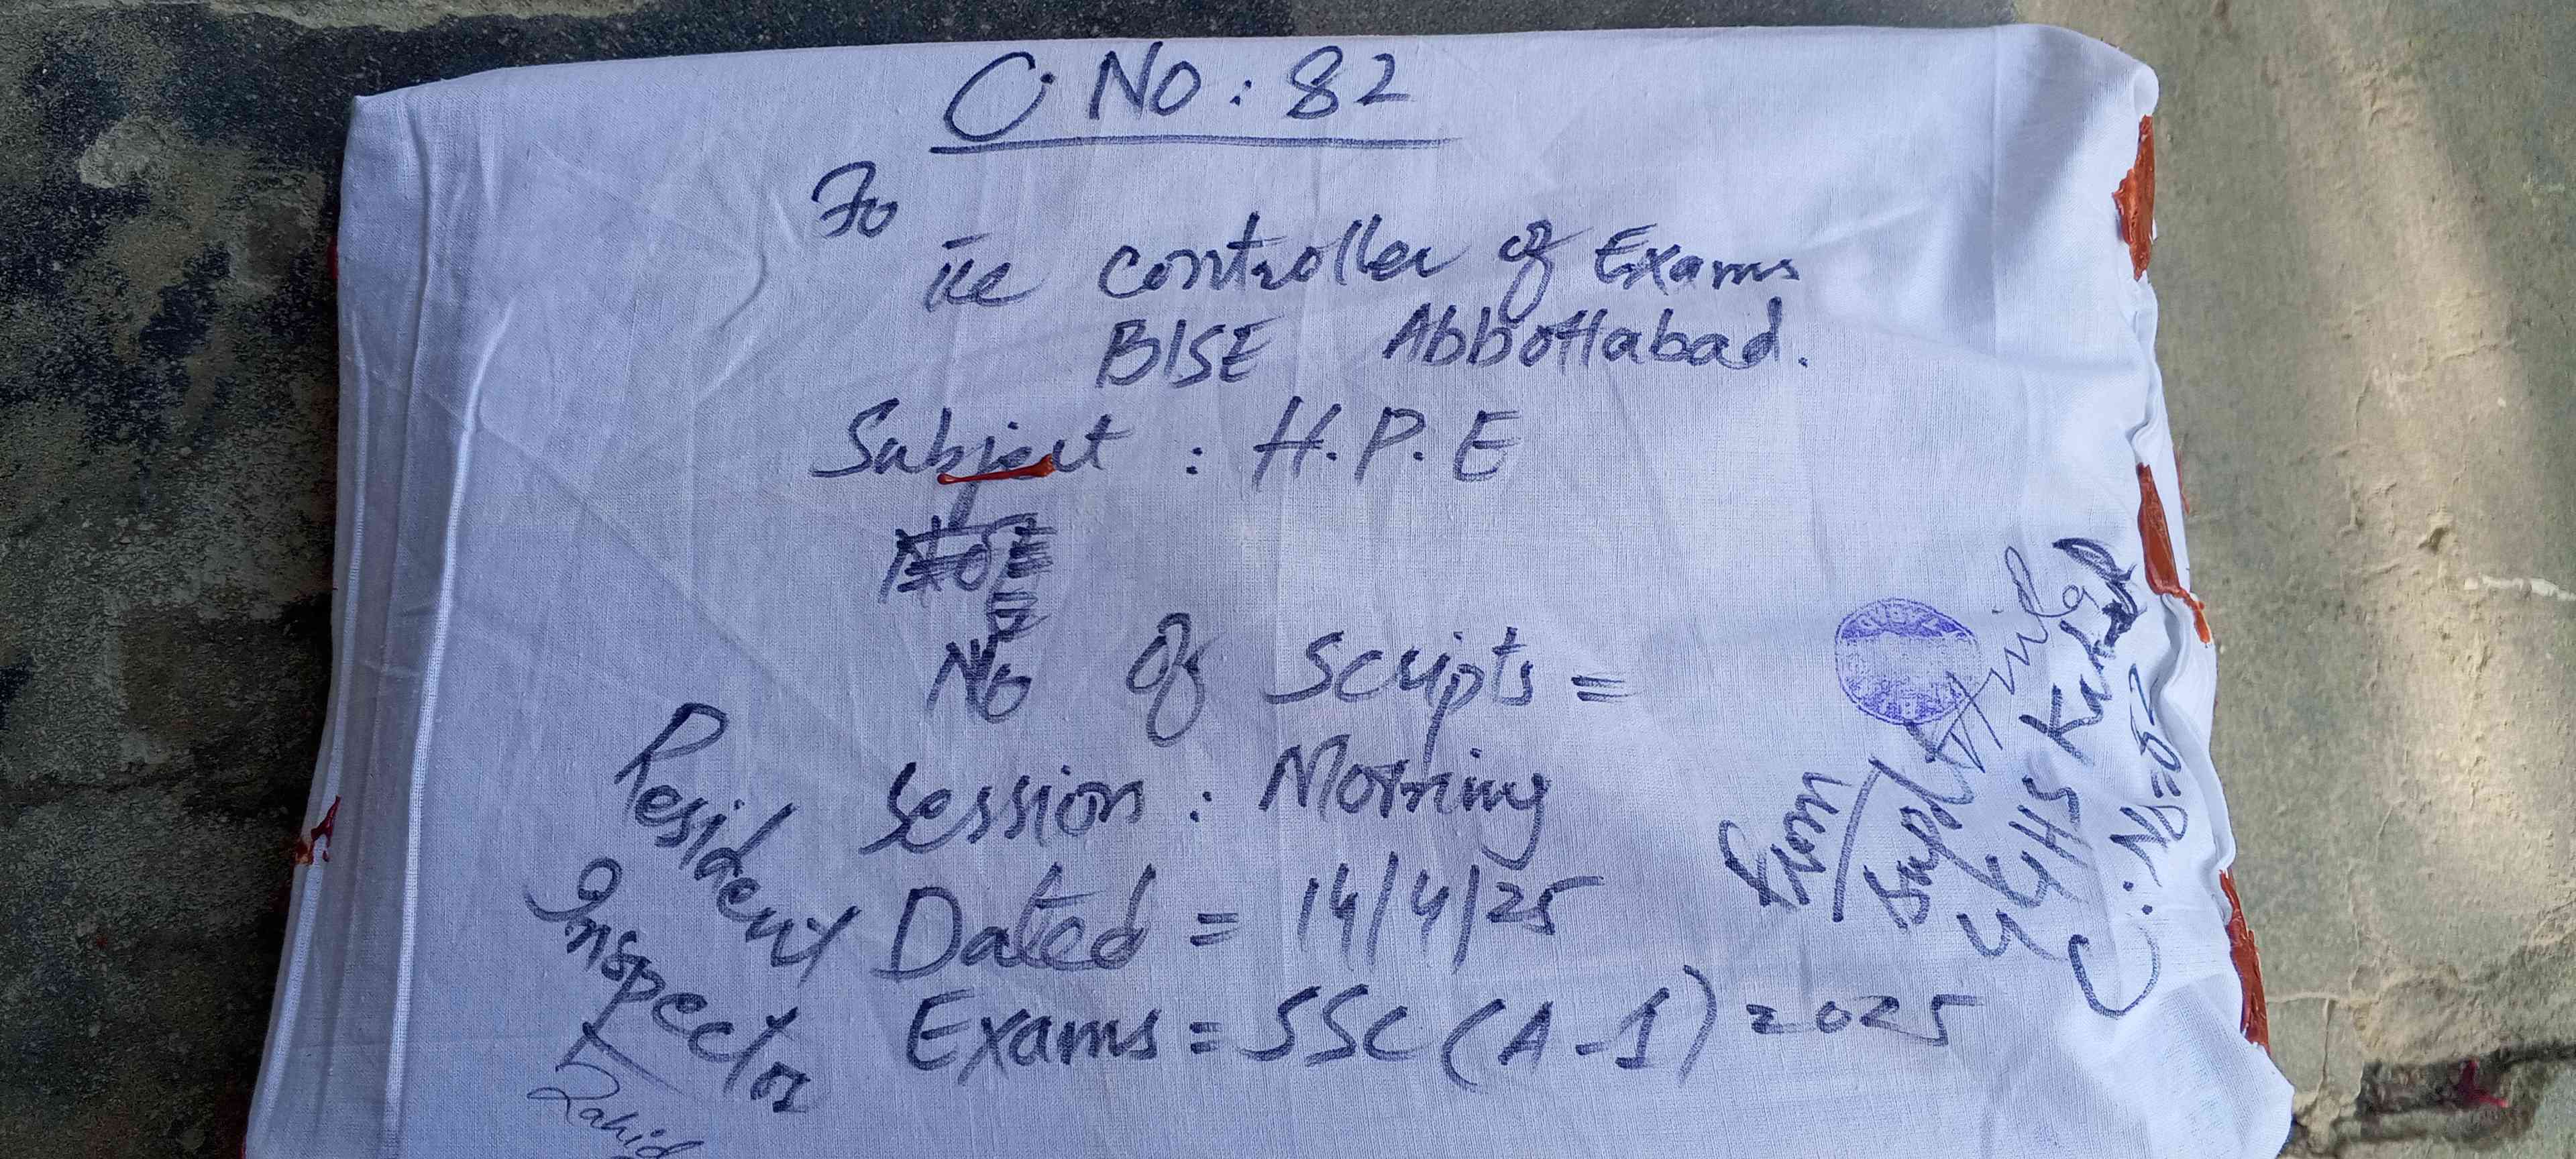 C. No: 82
To
The controller of Exams
BISE Abbottabad.
Subject : H.P.E
No of Scripts =
Session : Morning
Dated = 14/4/25
Exams = SSC (A-1) 2025
Resident
Inspector
Zahid
From
Supdt
GGHS
C. No = 82